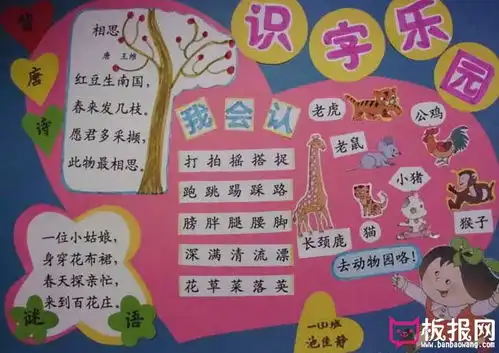 识字乐园
背
唐
诗
相思
唐 王维
红豆生南国，
春来发几枝。
愿君多采撷，
此物最相思。
我会认
打 拍 摇 搭 捉
跑 跳 踢 踩 路
膀 胖 腿 腰 脚
深 满 清 流 漂
花 草 菜 落 英
老虎
公鸡
老鼠
小猪
长颈鹿
猫
猴子
去动物园咯！
一位小姑娘，
身穿花布裙，
春天探亲忙，
来到百花庄。
谜
语
板报网
www.banbaowang.com